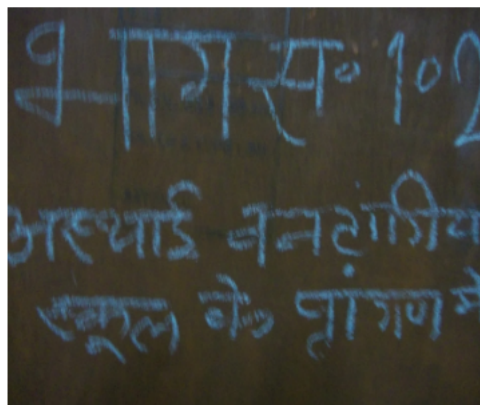 भाग सं० 1०2
अस्थाई वनटांगिय
स्कूल के प्रांगण मे